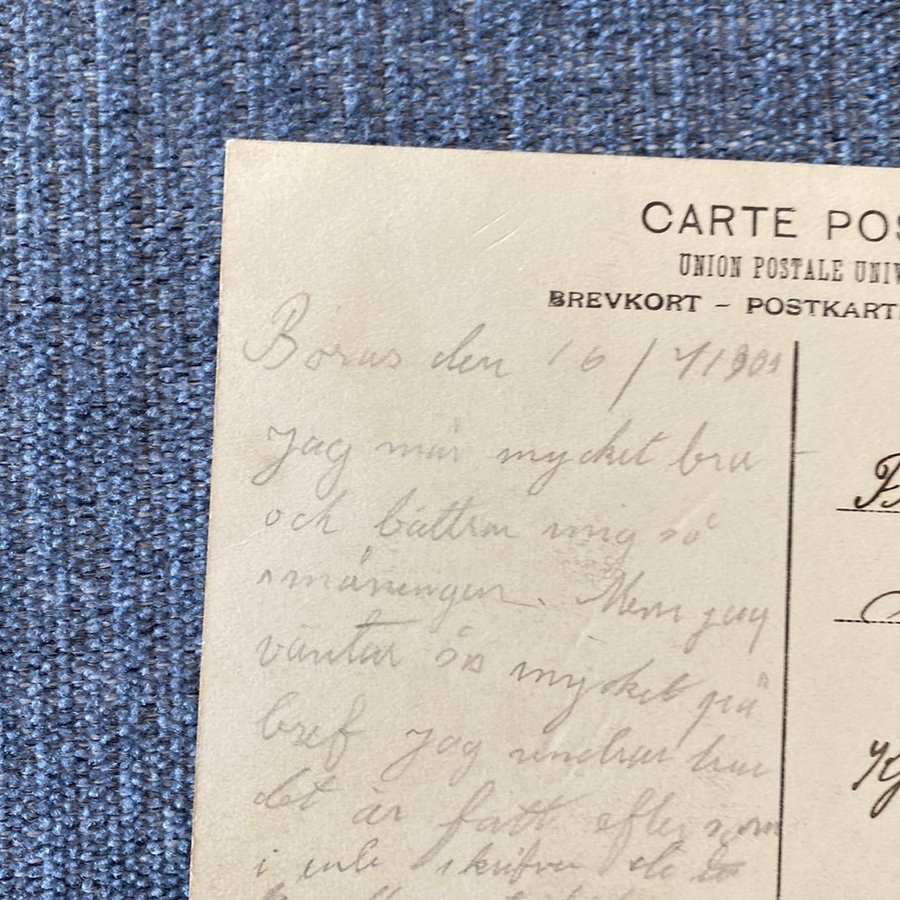 CARTE POS
UNION POSTALE UNIV
BREVKORT – POSTKARTE
Borås den 16/71903
Jag mår mycket bra
och bättrar mig så
småningom. Men jag
väntar så mycket på
bref Jag undrar hur
det är fatt efter som
i inte skrifver